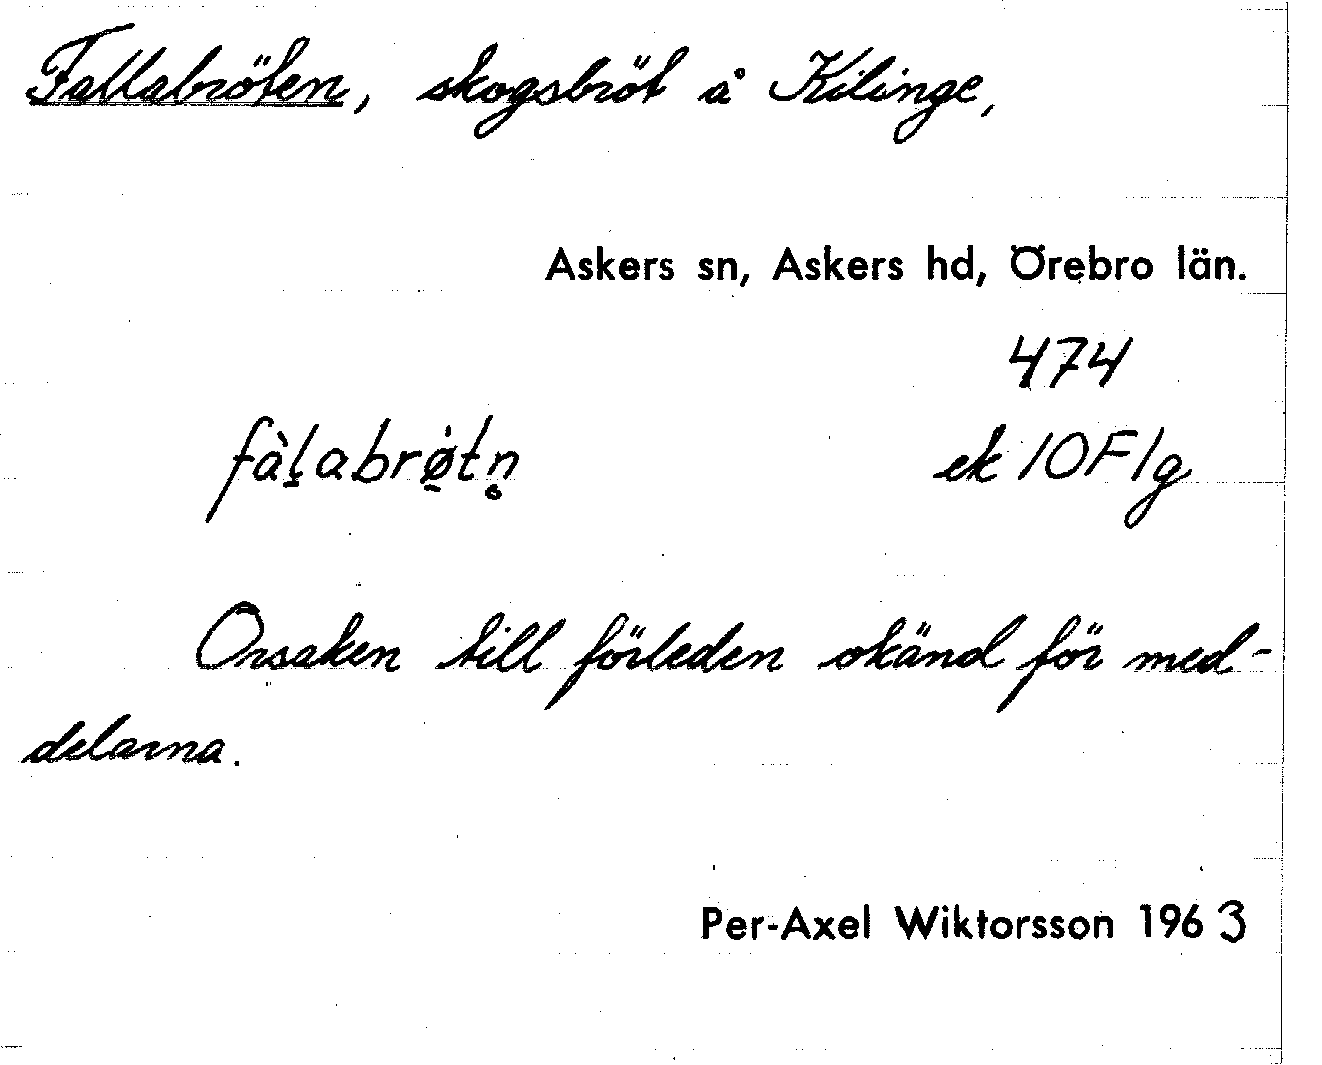 Fallabröten, skogsbröt å Kilinge,
Askers sn, Askers hd, Örebro län.
474
fàl̠abrø̠̇tn̥ ek 10F1g
Orsaken till förleden okänd för med-
delarna.
Per-Axel Wiktorsson 1963